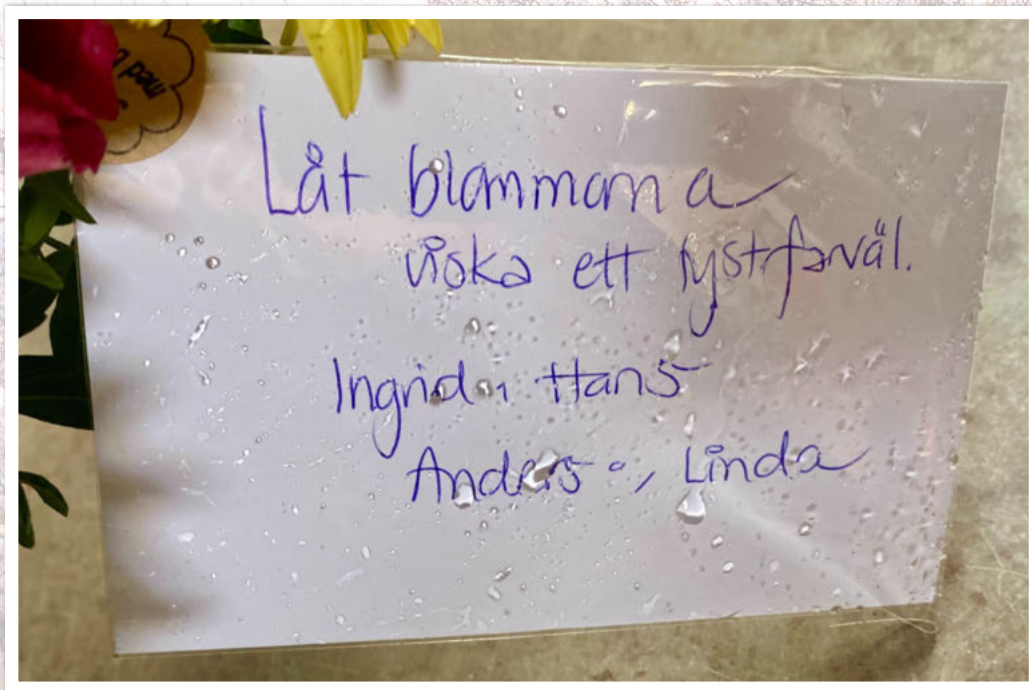 med
Låt blommorna
viska ett tyst farväl.
Ingrid, Hans
Anders, Linda